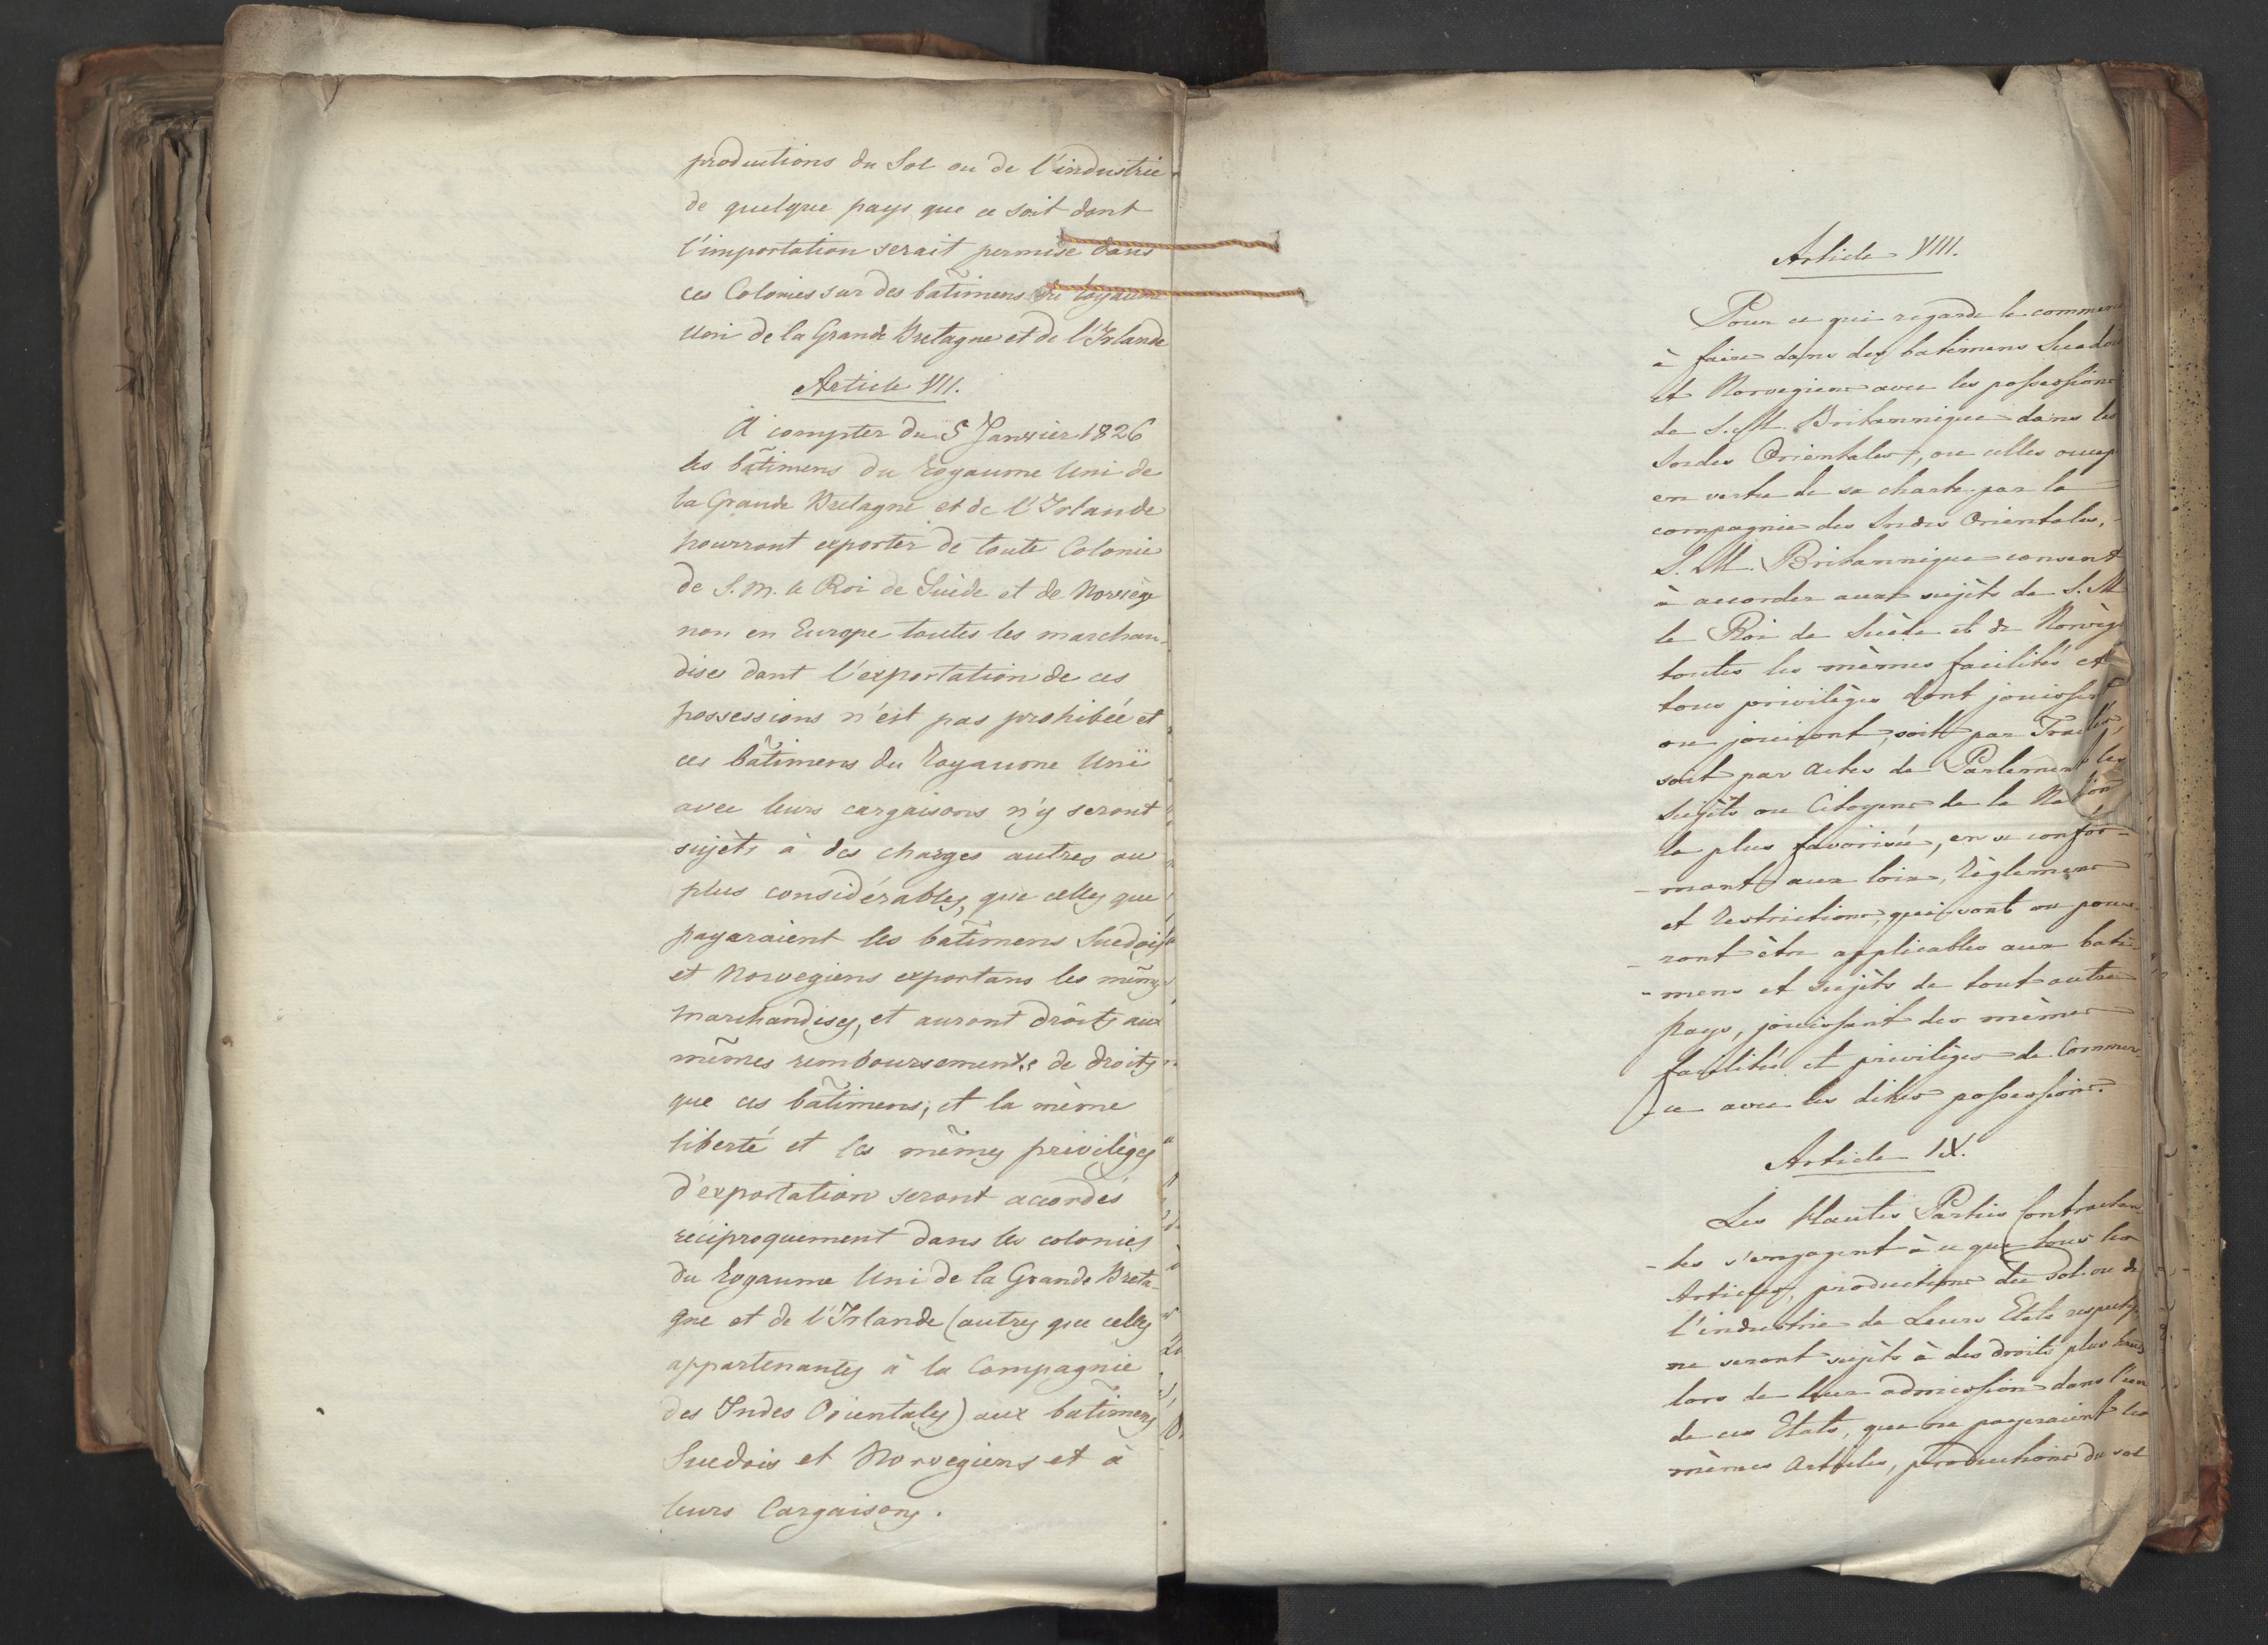 productions du Sol ou de l'industrie
de quelque pays que ce soit dont
l'importation serait permise dans
ces Colonies sur des bâtimens du royaume
uni de la Grande Bretagne et de l'Irlande
Article VII.
A compter du 5 Janvier 1826
les bâtimens du Royaume Uni de
la Grande Bretagne et de l'Irlande
pourront exporter de toute Colonie
de S. M. le Roi de Suède et de Norvège
non en Europe toutes les marchan-
dises dont l'exportation de ces
possessions n'est pas prohibée et
ces bâtimens du Royaume Uni
avec leurs cargaisons n'y seront
sujèts à des charges autres ou
plus considérables, que celles que
payaraient les bâtimens Suedois
et Norvegiens exportans les mêmes
marchandises, et auront droits aux
mêmes remboursements de droits
que ces bâtimens; et la même
liberté et les mêmes privilèges
d'exportation seront accordés
réciproquement dans les colonies
du Royaume Uni de la Grande Breta-
gne et de l'Irlande (autres que celles
appartenantes à la Compagnie
des Indes Orientales) aux batimens
Suedois et Norvegiens et à
leurs Cargaisons.
Article VIII.
Pour ce qui regarde le commerce
à faire dans des batimens Suedois
et Norvegiens avec les possessions
de S. M. Britannique dans les
Indes Orientales, ou celles occup
en vertu de sa charte par la
compagnie des Indes Orientales,
S. M. Britannique consent
à accorder aux sujèts de S. M
le Roi de Suède et de Norvège
toutes les mèmes facilités et
tous privilèges dont jouissent
ou jouiront, soit par Traités,
soit par Actes de Parlement les
Sujèts ou Citoyens de la Nation
la plus favorisée, en se confor-
-mant aux loix, règlemens
et restrictions, qui sont ou pour-
-ront être applicables aux bati-
-mens et sujèts de tout autre
pays, jouissant des mèmes
facilités et privilèges de Commer-
-ce avec les dites possessions.
Article IX.
Les Hautes Parties Contractan
-tes s'engagent à ce que tous les
Articles, productions du sol ou de
l'industrie de Leurs Etats respectifs
ne seront sujèts à des droits plus hauts
lors de leur admission dans l'un
de ces Etats, que ne payeraient les
mèmes Articles, productions du sol